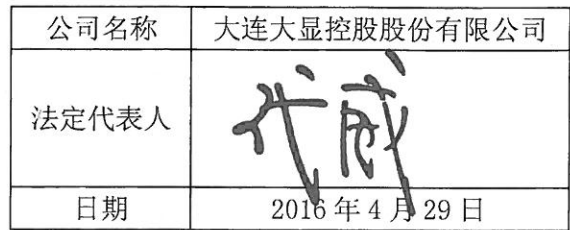 公司名称 大连大显控股股份有限公司
法定代表人 代威
日期 2016年4月29日